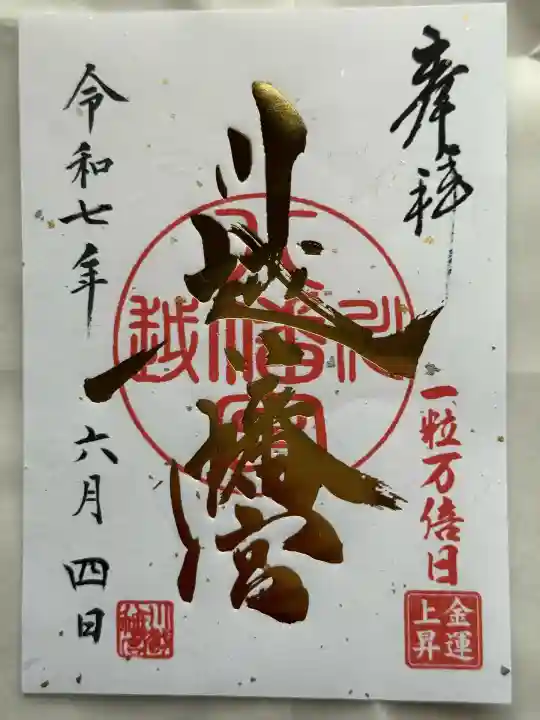 奉拝
一粒万倍日
金運
上昇
川越八幡宮
川越
八幡宮
令和七年 六月 四日